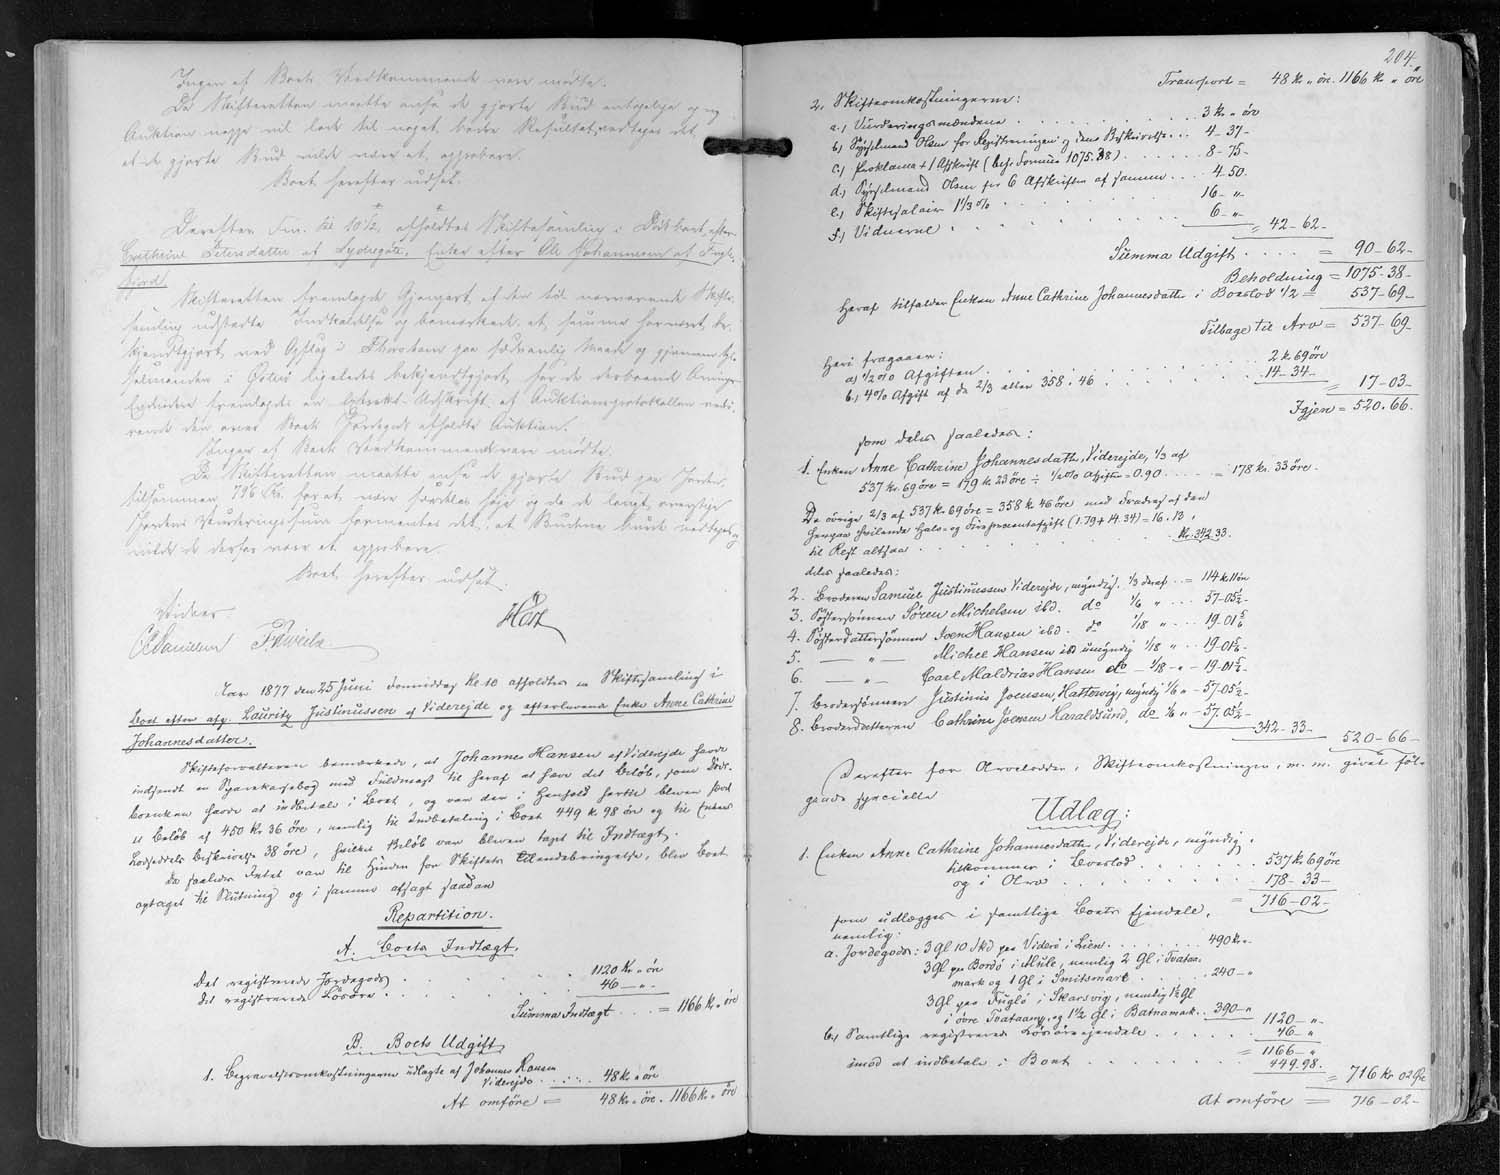 Ingen af Boets Vedkommende vare mødte.
Da Skifteretten maatte anse de gjorte Bud antagelige og ny
Auktion neppe vil lede til noget bedre Resultat, vedtoges det,
at de gjorte Bud vilde være at approbere.
Boet herefter udsat.
Derefter Fm. Kl 10½, afholdtes Skiftesamling i Dødsboet efter
Cathrine Petersdatter af Lydersgöte, Enke efter Ole Johannesen af Fugle-
fjord
Skifteretten fremlagde Gjenpart af den til nærværende Skifte-
samling udstedte Indkaldelse og bemærkede, at samme forment be-
kjendtgjort ved Opslag i Thorshavn paa sædvanlig Maade og gjennem Sys-
selmanden i Østerø ligeledes bekjendtgjort for de derboende Arvinger
Endvidere fremlagdes en Extrakt Udskrift af Auktionsprotokollen vedrø-
rende den over Boets Jordegods afholdte Auktion.
Ingen af Boets Vedkommende vare mødte.
Da Skifteretten maatte anse de gjorte Bud paa Jorden
tilsammen 796 Kr. for at være særdeles høje og da de langt oversteg
Jordens Vurderingssum formentes det, at Budene burde vedtages og
vilde de derfor være at approbere.
Boet herefter udsat
Vidner
C Danielsen
Aar 1877 den 25 Juni Formiddag Kl. 10 afholdtes en Skiftesamling i
Boet efter afg. Lauritz Justinussen af Viderejde og efterlevende Enke Anne Cathrine
Johannesdatter.
Skifteforvalteren bemærkede, at Johannes Hansen af Viderejde havde
indsendt en Sparekassebog med Fuldmagt til heraf at hæve det Beløb, som Døds-
boenken havde at indbetale i Boet, og var der i Henhold hertil bleven hævet
et Beløb af 450 Kr 36 öre, nemlig til Indbetaling i Boet 449 K. 98 öre og til Enkens
Lodseddels Beskrivelse 38 öre, hvilket Beløb var bleven taget til Indtægt.
Da saaledes Intet var til Hinder for Skiftets Tilendebringelse, blev Boet
optaget til Slutning og i samme afsagt saadan
Repartition.
A. Boets Indtægt.
Det registrerede Jordegods . . . 1120 Kr „ öre
det registrerede Lösöre . . . 46 - „ -
Summa Indtægt . . . = 1166 Kr „ öre
B. Boets Udgift
1. Begravelsesomkostningerne udlagte af Johannes Hansen
Viderejde . . . . . 48 Kr „ öre
At omføre = 48 Kr „ öre. 1166 Kr „ öre
204.
Transport = 48 Kr „ öre. 1166 Kr „ öre
2. Skifteomkostningerne:
a.) Vurderingsmændene . . . 3 Kr „ öre
b) Sysselmand Olsen for Registreringen og dens Beskrivelse . . . 4 - 37 -
c.) Proklama + 1 Afskrift (beh. Formue 1075.38) . . . 8 - 75 -
d.) Sysselmand Olsen for 6 Afskrifter af samme . . . 4 - 50.
e.) Skiftesalair 1⅓% . . . 16 - „
f.) Vidnerne . . . 6 - „ -
= 42 - 62 -
Summa Udgift . . . = 90 - 62 -
Beholdning = 1075 - 38 -
Heraf tilfalder Enken Anne Cathrine Johannesdatter i Boeslod ½ = 537 - 69 -
Tilbage til Arv = 537 - 69
Heri fragaaer:
a) ½% Afgiften . . . 2 K. 69 öre
b.) 4% Afgift af de 2/3 eller 358.46 . . . 14 - 34 -
= 17 - 03 -
Igjen = 520.66.
som deles saaledes:
1. Enken Anne Cathrine Johannesdatter, Viderejde, ⅓ af
537 Kr. 69 öre = 179 K 23 öre ÷ ½% Afgiften = 0.90 . . . = 178 Kr. 33 öre.
De øvrige 2/3 af 537 K. 69 öre = 358 K 46 öre med Fradrag af den
herpaa hvilende Halv- og Fireprocentafgift (1.79 + 14.34) = 16.13,
til Rest altsaa . . . Kr. 342 33.
deles saaledes:
2. Broderen Samuel Justinussen Viderejde, myndig. ⅓ deraf . . = 114 K. 11 öre
3. Søstersønnen Søren Michelsen ibd. do 1/6 „ . . . 57 - 05½ -
4. Søsterdattersønnen Joen Hansen ibd. do 1/18 „ . . . 19. 01 5/6
5. — „ — Michel Hansen ibd umyndig 1/18 „ . . 19 - 01 5/6 -
6. — „ — Carl Maldrias Hansen do — 1/18 - „ - 19 - 01 5/6 -
7. Brodersønnen Justinus Joensen, Hattervig, myndig 1/6 „ - 57.05½ -
8. Broderdatteren Cathrine Joensen Haraldsund, do 1/6 „ - 57. 05½ -
342 - 33 -
520 - 66 -
Derefter for Arvelodder, Skifteomkostninger, m. m. givet föl-
gende specielle
Udlæg:
1. Enken Anne Cathrine Johannesdatter, Viderejde, myndig.
tilkommer i Boeslod . . . 537 K. 69 öre
og i Arv . . . 178 - 33 -
= 716 - 02 -
som udlægges i samtlige Boets Ejendele,
nemlig:
a. Jordegods: 3 Gl 10 Skd paa Viderö i Lien . . . 490 Kr „.
3 Gl paa Bordö i Mule, nemlig 2 Gl i Tvataa-
mark og 1 Gl i Smitsmark . . . 240 - „
3 Gl paa Fuglö i Skarsvig, nemlig 1½ Gl
i övre Tvataamp. og 1½ Gl i Batnamark . . 390 - „
1120 - „ -
b.) Samtlige registrerede Lösöreejendele . . . 46 - „
= 1166 - „
imod at indbetale i Boet . . . 449.98.
= 716 Kr 02 Öre
At omføre = 716 - 02 -